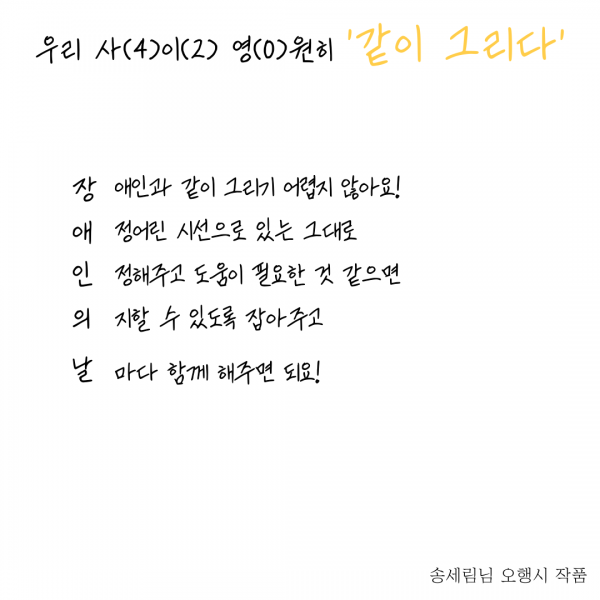 우리 사(4)이(2) 영(0)원히 '같이 그리다'
장 애인과 같이 그리기 어렵지 않아요!
애 정어린 시선으로 있는 그대로
인 정해주고 도움이 필요한 것 같으면
의 지할 수 있도록 잡아주고
날 마다 함께 해주면 되요!
송세림님 오행시 작품